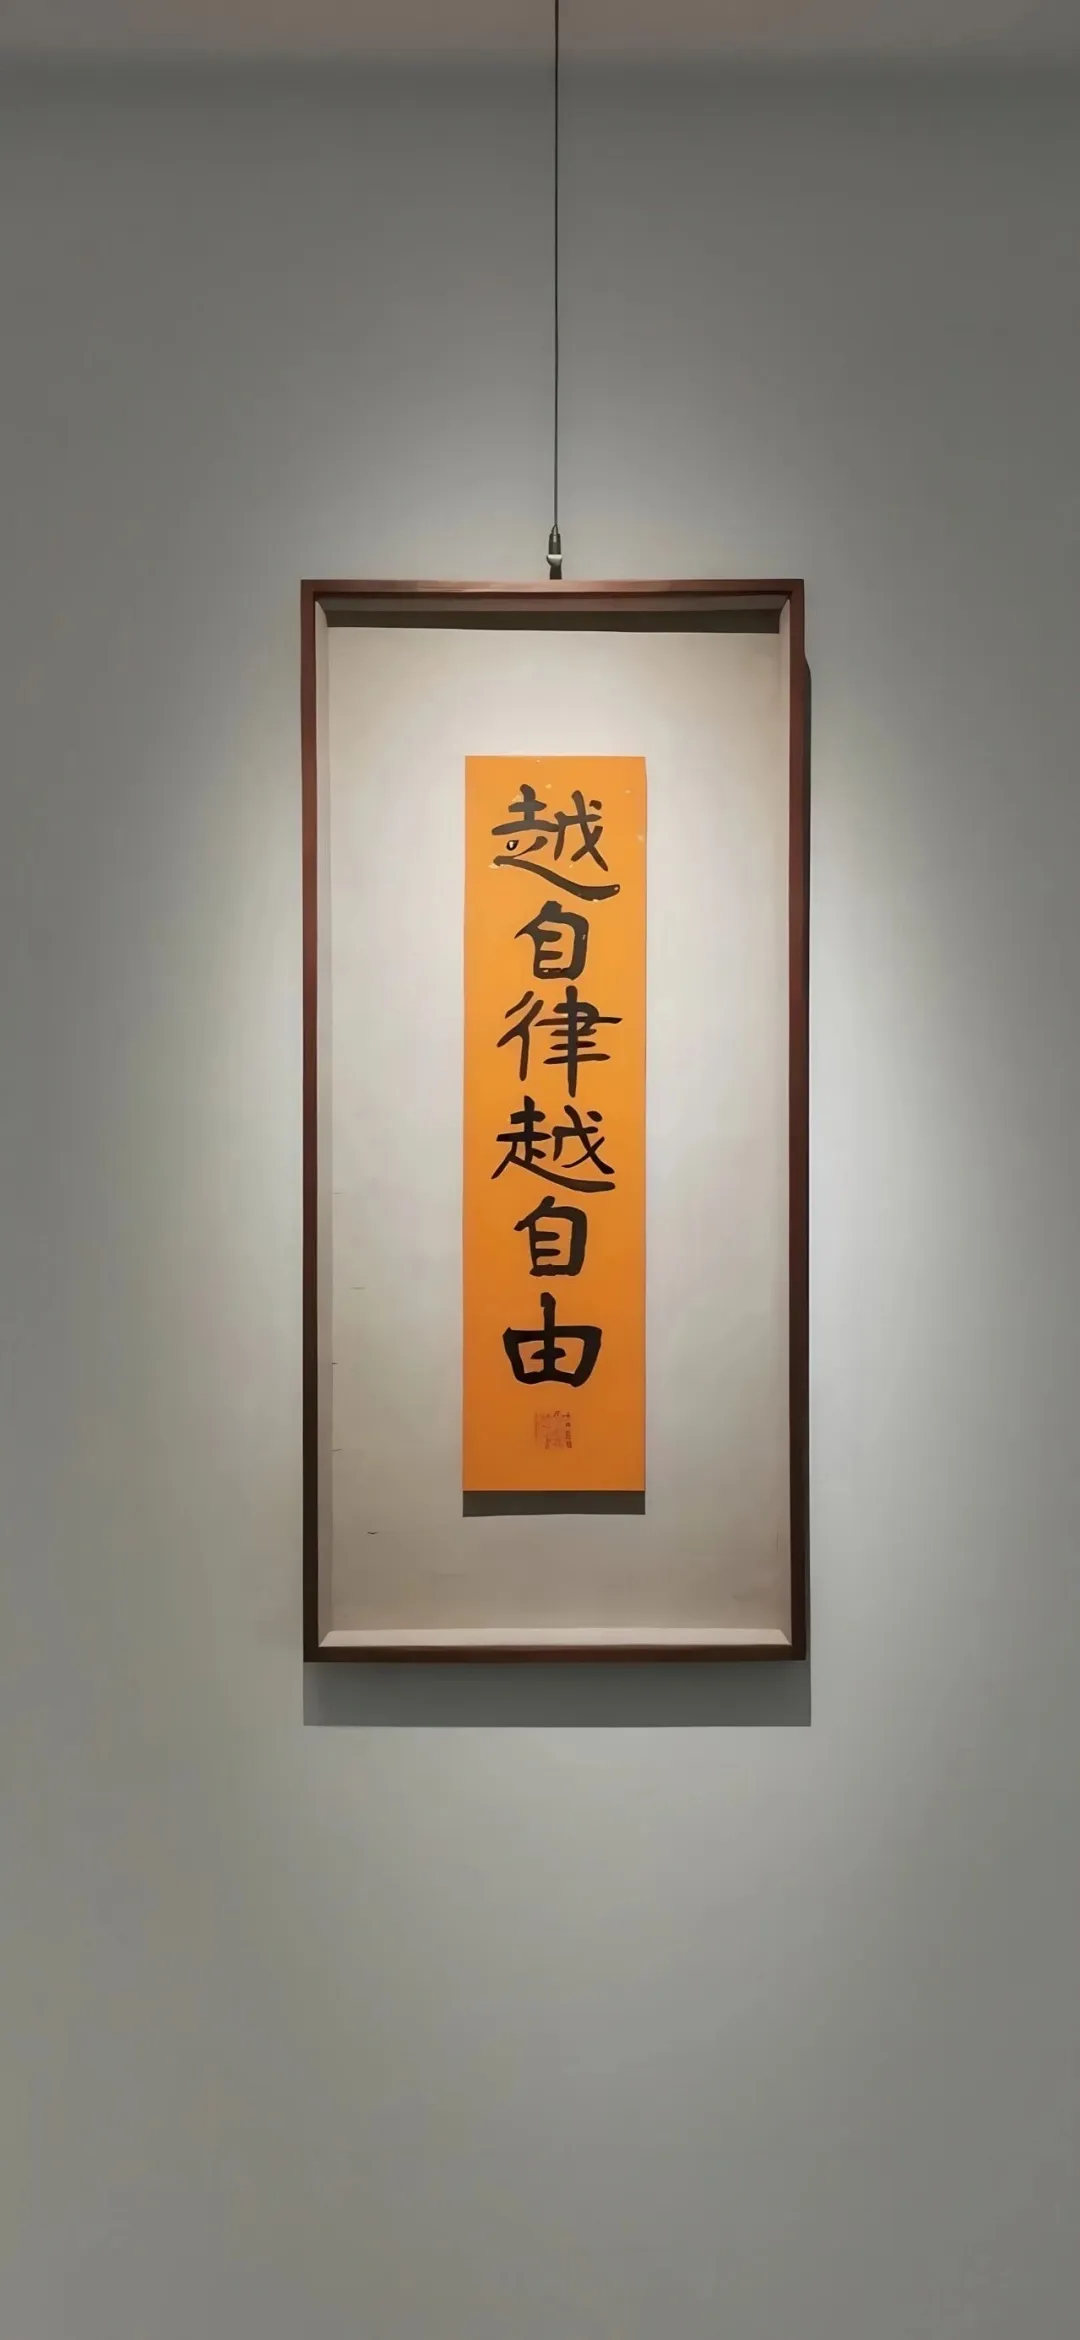 越自律越自由